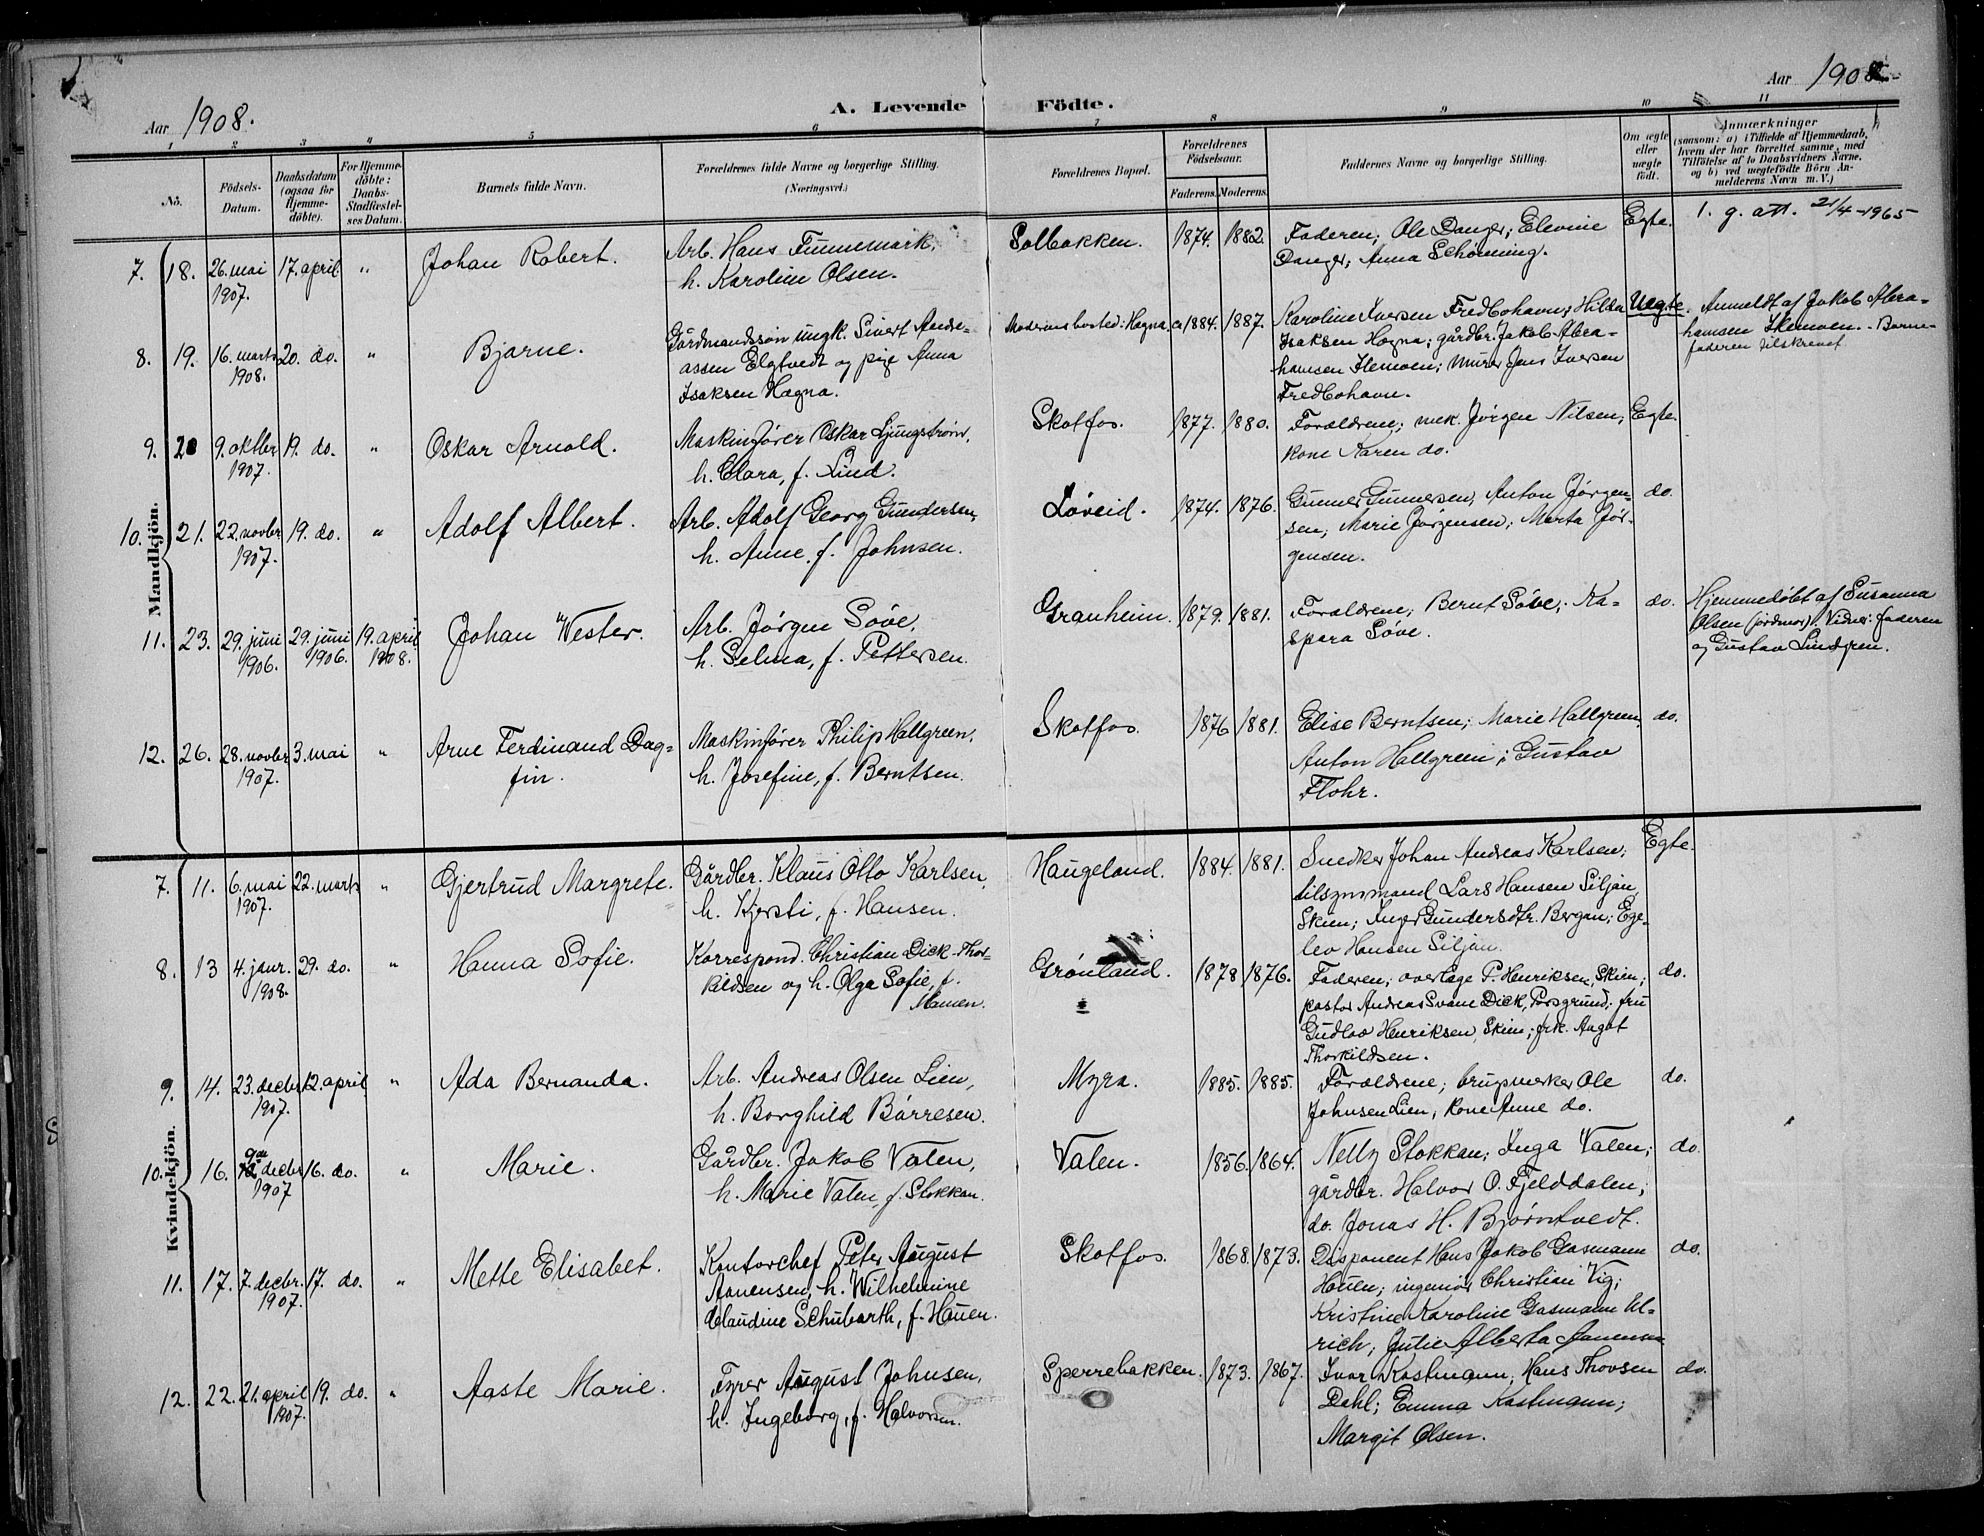 Aar 1908.
A. Levende Födte.
Aar 1908
1 2 3 4 5 6 7 8 9 10 11
No.
Födsels-Datum.
Daabsdatum (ogsaa for Hjemme-döbte).
For Hjemme-döbte: Daabs-Stadfæstel-ses Datum.
Barnets fulde Navn.
Forældrenes fulde Navne og borgerlige Stilling. (Næringsvei.)
Forældrenes Bopæl.
Forældrenes Födselsaar.
Faderens. Moderens.
Faddernes Navne og borgerlige Stilling.
Om ægte eller uægte födt.
Anmærkninger
(saasom: a) i Tilfælde af Hjemmedaab,
hvem der har forrettet samme, med
Tilföielse af to Daabsvidners Navne,
og b) ved uægtefödte Börn An-
melderens Navn m. V.)
Mandkjön.
7. 18. 26. mai 1907. 17. april " Johan Robert. Arb. Hans Funnemark, Solbakken. 1874. 1882. Faderen; Ole Danger; Elevine Egte. 1. g. att. 21/4-1965
h. Karoline Olsen. Danger; Anna Schønning.
8. 19. 16. marts 1908. 20. do. " Bjarne. Gårdmandssøn ungk. Sivert Andre- Moderens bosted: Hagna. ca 1884. 1887. Karoline Iversen Fredbohavn; Hilda Uegte. Anmeldt af Jakob Abra-
assen Elgtvedt og pige Anna Isaksen Hagna; gårdbr. Jakob Abra- hamsen Stemoen. - Barne-
Isaksen Hagna. hamsen Stemoen; murer Jens Iversen faderen tilskrevet
Fredbohavn.
9. 20 9. oktbr 1907. 19. do. " Oskar Arnold. Maskinfører Oskar Ljungstrøm, Skotfos. 1877. 1880. Forældrene; mek. Jørgen Nilsen, Egte.
h. Clara, f. Lind. kone Karen do.
10. 21. 22. novbr 1907. 19. do. " Adolf Albert. Arb. Adolf Georg Gundersen, Løveid. 1874. 1876. Gunner Gunnersen, Anton Jørgen- do.
h. Anne, f. Johnsen. sen; Marie Jørgensen; Marta Jør-
gensen.
11. 23. 29. juni 1906. 29. juni 1906. 19. april 1908. Johan Wester. Arb. Jørgen Søve, Granheim. 1879. 1881. Forældrene; Bernt Søve; Ka- do. Hjemmedøbt af Susanna
h. Selma, f. Pettersen. spara Søve. Olsen (jordmor). Vidner: faderen
og Gustav Lindgren.
12. 26. 28. novbr 1907. 3. mai " Arne Ferdinand Dag- Maskinfører Philip Hallgreen, Skotfos. 1876 1881. Elise Berntsen; Marie Hallgreen do.
fin. h. Josefine, f. Berntsen. Anton Hallgreen; Gustav
Flohr.
Kvindekjön.
7. 11. 6. mai 1907. 22. marts " Gjertrud Margrete. Gårdbr. Klaus Otto Karlsen, Haugeland. 1884. 1881. Snedker Johan Andreas Karlsen; Egte.
h. Kjersti, f. Hansen. tilsynsmand Lars Hansen Siljan,
Skien; Inger Gundersdtr. Bergan; Ege-
lev Hansen Siljan.
8. 13 4. janr. 1908. 29. do. " Hanna Sofie. Korrespond. Christian Dick Thor- Grønland. 1878 1876. Faderen; overlæge P. Henriksen, Skien; do.
kildsen og h. Olga Sofie, f. pastor Andreas Svane Dick, Porsgrund; fru
Mamen. Gudlov Henriksen, Skien; frk. Aagot
Thorkildsen.
9. 14. 23. decbr 1907. 12. april " Ada Bernanda. Arb. Andreas Olsen Lien, Myra. 1885. 1885. Forældrene; brugsmerker Ole do.
h. Borghild Børresen. Johnsen Lien, kone Anne do.
10. 16. 9de decbr 1907 16. do. " Marie. Gårdbr. Jakob Valen, Valen. 1856. 1864. Nelly Stokkan; Inga Valen; do.
h. Marie Valen, f. Stokkan. gårdbr. Halvor O. Fjelddalen;
do. Jonas H. Bjørntvedt.
11. 17. 7. decbr. 1907. 17. do. " Mette Elisabet. Kontorchef Peter August Skotfos. 1868. 1873. Disponent Hans Jakob Gasmann do.
Aanensen, h. Wilhelmine Houen; ingeniør Christian Vig;
Claudine Schubarth, f. Houen. Kristine Karoline Gasmann Ul-
rich; Julie Alberta Aanensen
12. 22. 21. april 1907. 19. do. " Aaste Marie. Fyrer August Johnsen, Sperrebakken. 1873. 1867. Ivar Kastmann, Hans Thovsen do.
h. Ingeborg, f. Halvorsen. Dahl; Emma Kastmann;
Margit Olsen.